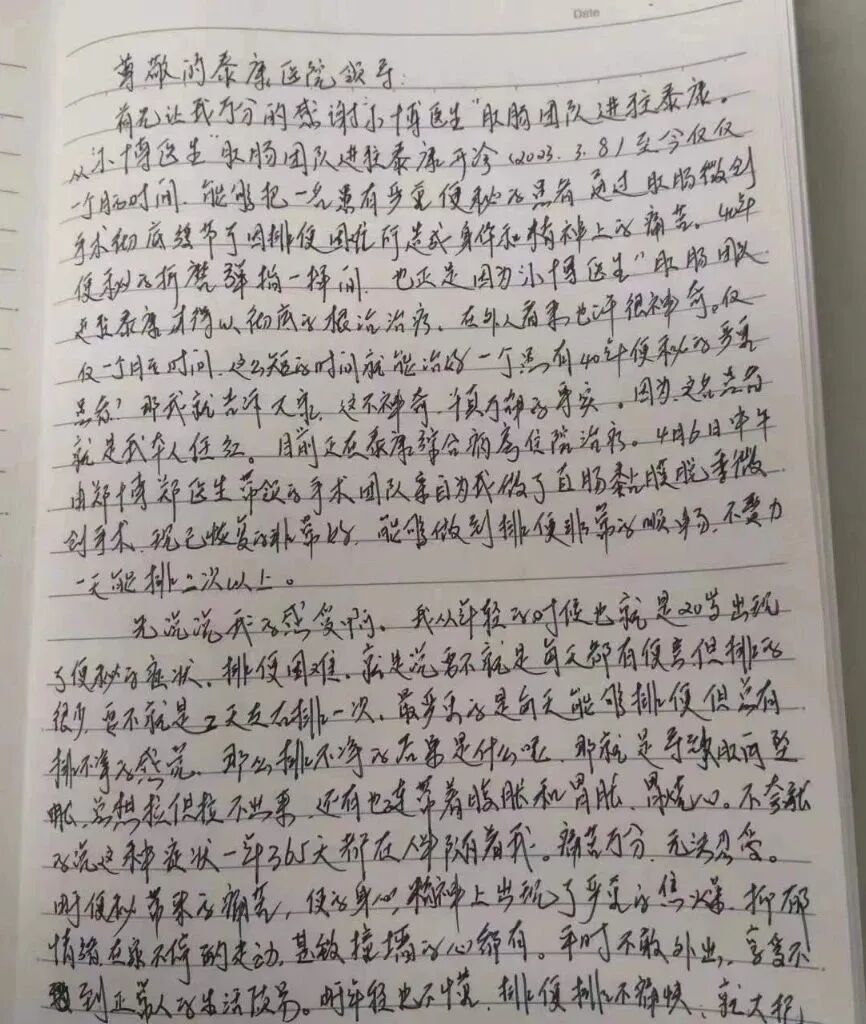 Date
尊敬的泰康医院领导:
首先让我万分的感谢郑博医生"肛肠团队进驻泰康。
从郑博医生"肛肠团队进驻泰康开诊(2023.3.8)至今仅仅
一个月时间、能够把一名患有严重便秘的患者通过肛肠微创
手术彻底结节了因排便困难所造成身体和精神上的痛苦。40年
便秘的折磨弹指一挥间、也正是因为郑博医生"肛肠团队
进驻泰康才得以彻底的根治治疗。在外人看来也许很神奇。仅
仅一个月的时间、这么短的时间就能治好一个患有40年便秘的严重
患者?那我就告诉大家,这不神奇,千真万确的事实。因为这名患者
就是我本人任红。目前正在泰康综合病房住院治疗。4月6日中午
由郑博郑医生带领的手术团队亲自为我做了直肠黏膜脱垂微
创手术、现已恢复的非常好,能够做到排便非常的顺畅、不费力
一天能排二次以上。
先说说我的感受啊。我从年轻的时候也就是20岁出现
了便秘的症状、排便困难、就是说要不就是每天都有便意但排的
很少,要不就是2天左右排一次、最严重的是每天能够排便但总有
排不净的感觉、那么排不净的后果是什么呢、那就是导致肛门坠
胀、总想拉但拉不出来、还有也连带着腹胀和胃胀、胃烧心。不夸张
的说这种症状一年365天都在伴随着我。痛苦万分、无法忍受。
由于便秘带来的痛苦,使的身心,精神上出现了严重的焦燥、抑郁
情绪、在家不停的走动、甚致撞墙的心都有。平时不敢外出,享受不
到正常人的生活质量。那年轻也不懂、排便排不痛快、就大把